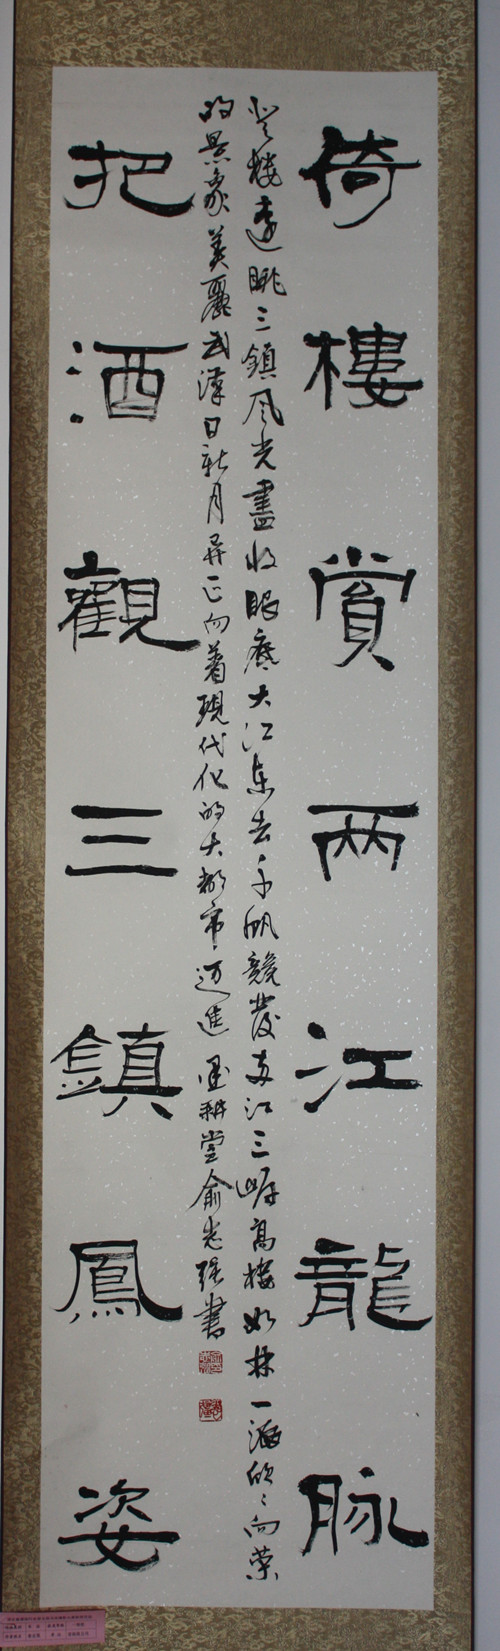 倚樓賞兩江龍脉
登樓遠眺三鎮风光盡收眼底大江东去千帆競發两江三岸高樓如林一派欣欣向荣
的景象美麗武漢日新月异正向着現代化的大都市迈進 墨耕堂俞志强書
把酒觀三鎮鳳姿